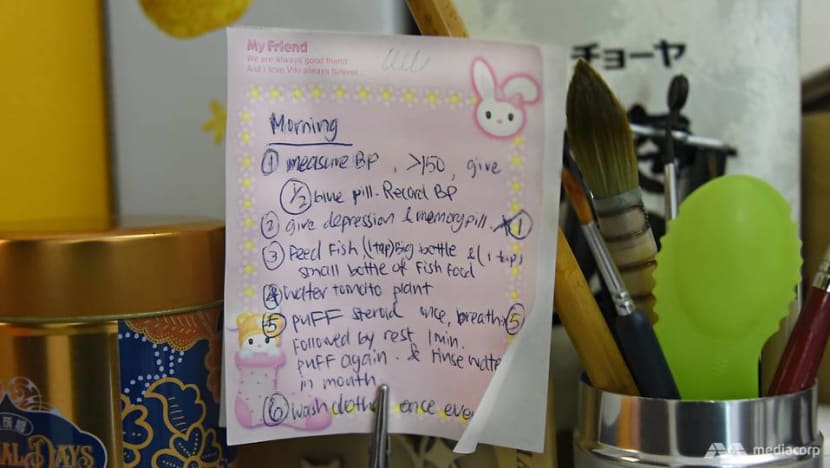 My Friend
We are always good friend
And I love You always forever
Morning
① measure BP, >150, give
1/2 blue pill. Record BP
② give depression & memory pill. 1
③ Feed Fish (1 tap) Big bottle & (1 tap)
small bottle of Fish Food
④ water tomato plant
⑤ puff steroid once, breathe 5
followed by rest 1 min.
puff again & rinse water
in mouth
⑥ wash once
チョーヤ
DAYS
mediacorp